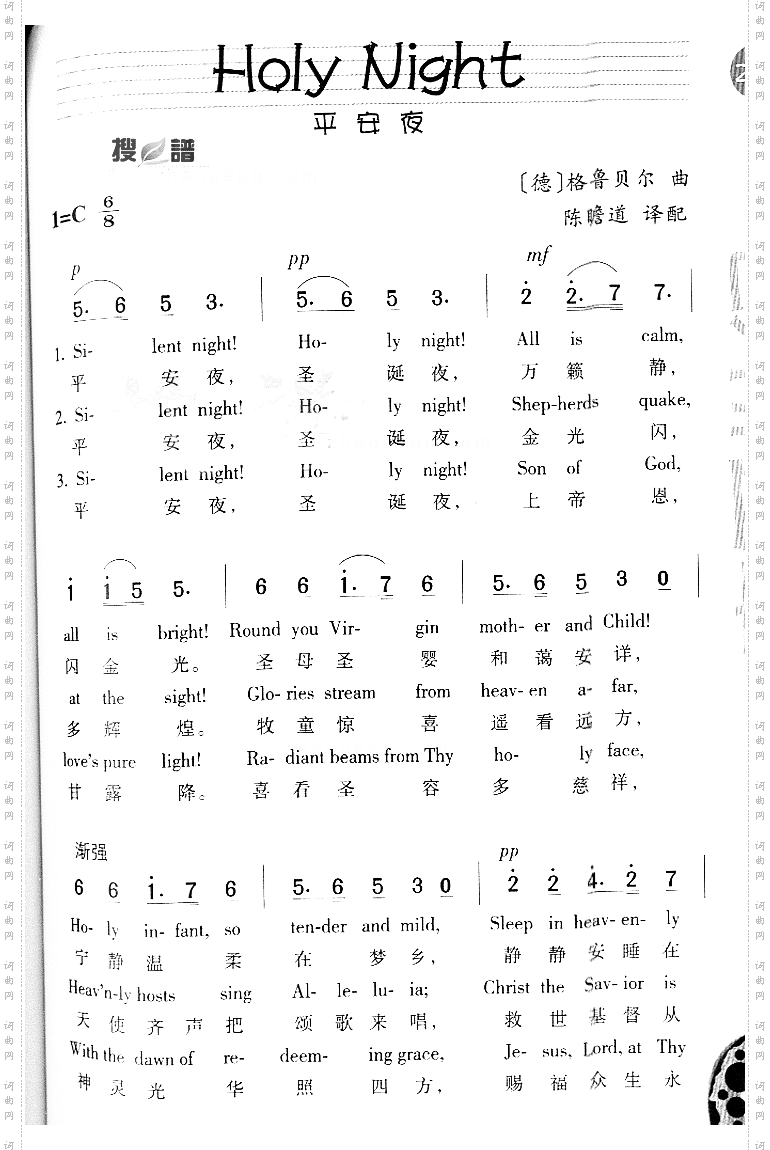 Holy Night
平安夜
搜譜
〔德〕格鲁贝尔 曲
1=C 6/8
陈瞻道 译配
p pp mf
5· 6 5 3· 5· 6 5 3· 2 2· 7 7·
1. Si- lent night! Ho- ly night! All is calm,
平 安 夜， 圣 诞 夜， 万 籁 静，
2. Si- lent night! Ho- ly night! Shep-herds quake,
平 安 夜， 圣 诞 夜， 金 光 闪，
3. Si- lent night! Ho- ly night! Son of God,
平 安 夜， 圣 诞 夜， 上 帝 恩，
1 1 5 5· 6 6 1· 7 6 5· 6 5 3 0
all is bright! Round you Vir- gin moth- er and Child!
闪 金 光。 圣 母 圣 婴 和 蔼 安 详，
at the sight! Glo- ries stream from heav- en a- far,
多 辉 煌。 牧 童 惊 喜 遥 看 远 方，
love's pure light! Ra- diant beams from Thy ho- ly face,
甘 露 降。 喜 看 圣 容 多 慈 祥，
渐强 pp
6 6 1· 7 6 5· 6 5 3 0 2 2 4· 2 7
Ho- ly in- fant, so ten-der and mild, Sleep in heav- en- ly
宁 静 温 柔 在 梦 乡， 静 静 安 睡 在
Heav'n-ly hosts sing Al- le- lu- ia; Christ the Sav- ior is
天 使 齐 声 把 颂 歌 来 唱， 救 世 基 督 从
With the dawn of re- deem- ing grace, Je- sus, Lord, at Thy
神 灵 光 华 照 四 方， 赐 福 众 生 永
词曲网